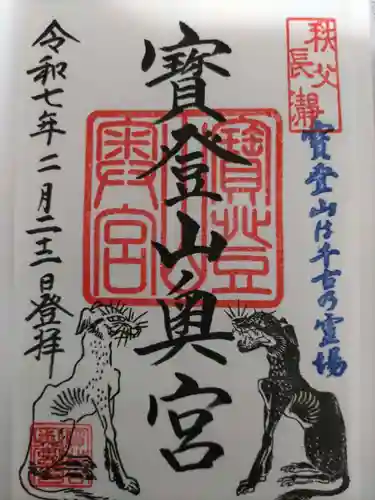 秩父
長瀞
寶登山は千古の霊場
寶登山奥宮
令和七年二月二十三日登拝